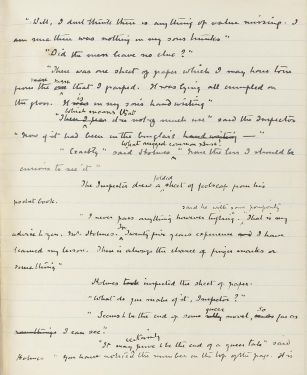 "Well, I don't think there is anything of value missing. I
am sure there was nothing in my sons trunks"
"Did the men leave no clue?"
"There was one sheet of paper which I may have torn
from the man that I grasped. It was lying all crumpled on
the floor. It is in my sons handwriting"
Which means that
"It is not of much use" said the Inspector
"Now if it had been in the burglar's
"Exactly" said Holmes "What rugged common sense! None the less I should be
curious to see it"
The Inspector drew a folded sheet of foolscap from his
pocket book.
"I never pass anything however trifling, said he with some pomposity. That is my
advice to you, Mr. Holmes. In Twenty five years experience I have
learned my lesson. There is always the chance of finger marks or
something"
Holmes inspected the sheet of paper.
"What do you make of it, Inspector?"
"Seems to be the end of some queer novel, so far as
I can see"
"It may certainly prove to be the end of a queer tale" said
Holmes "You have noticed the number on the top of the page. It is